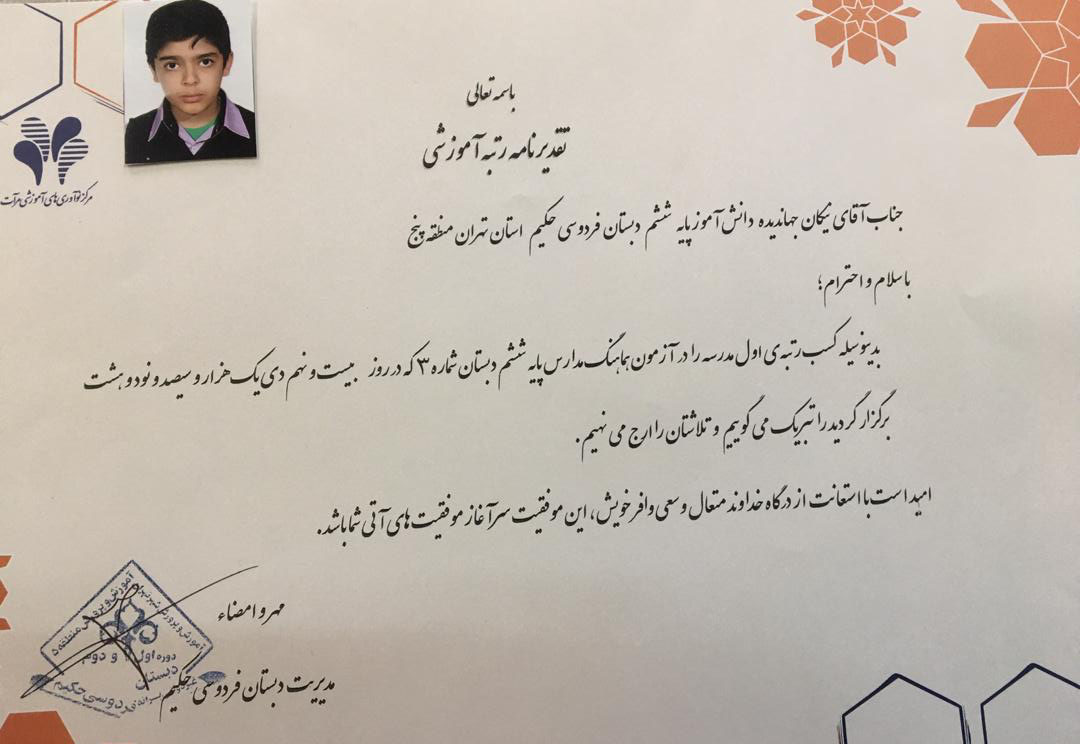 باسمه تعالی
تقدیرنامه رتبه آموزشی
مرکز نوآوری‌های آموزشی مرآت
جناب آقای نیکان جهاندیده دانش آموز پایه ششم دبستان فردوسی حکیم استان تهران منطقه پنج
باسلام و احترام؛
بدینوسیله کسب رتبه‌ی اول مدرسه را در آزمون هماهنگ مدارس پایه ششم دبستان شماره ۳ که در روز بیست و نهم دی یک هزار و سیصد و نود و هشت
برگزار گردید را تبریک می گوییم و تلاشتان را ارج می نهیم.
امید است با استعانت از درگاه خداوند متعال و سعی وافر خویش، این موفقیت سرآغاز موفقیت های آتی شما باشد.
مهر و امضاء
مدیریت دبستان فردوسی حکیم
آموزش و پرورش شهر تهران
آموزش و پرورش منطقه ۵
دوره اول و دوم
دبستان
فردوسی حکیم